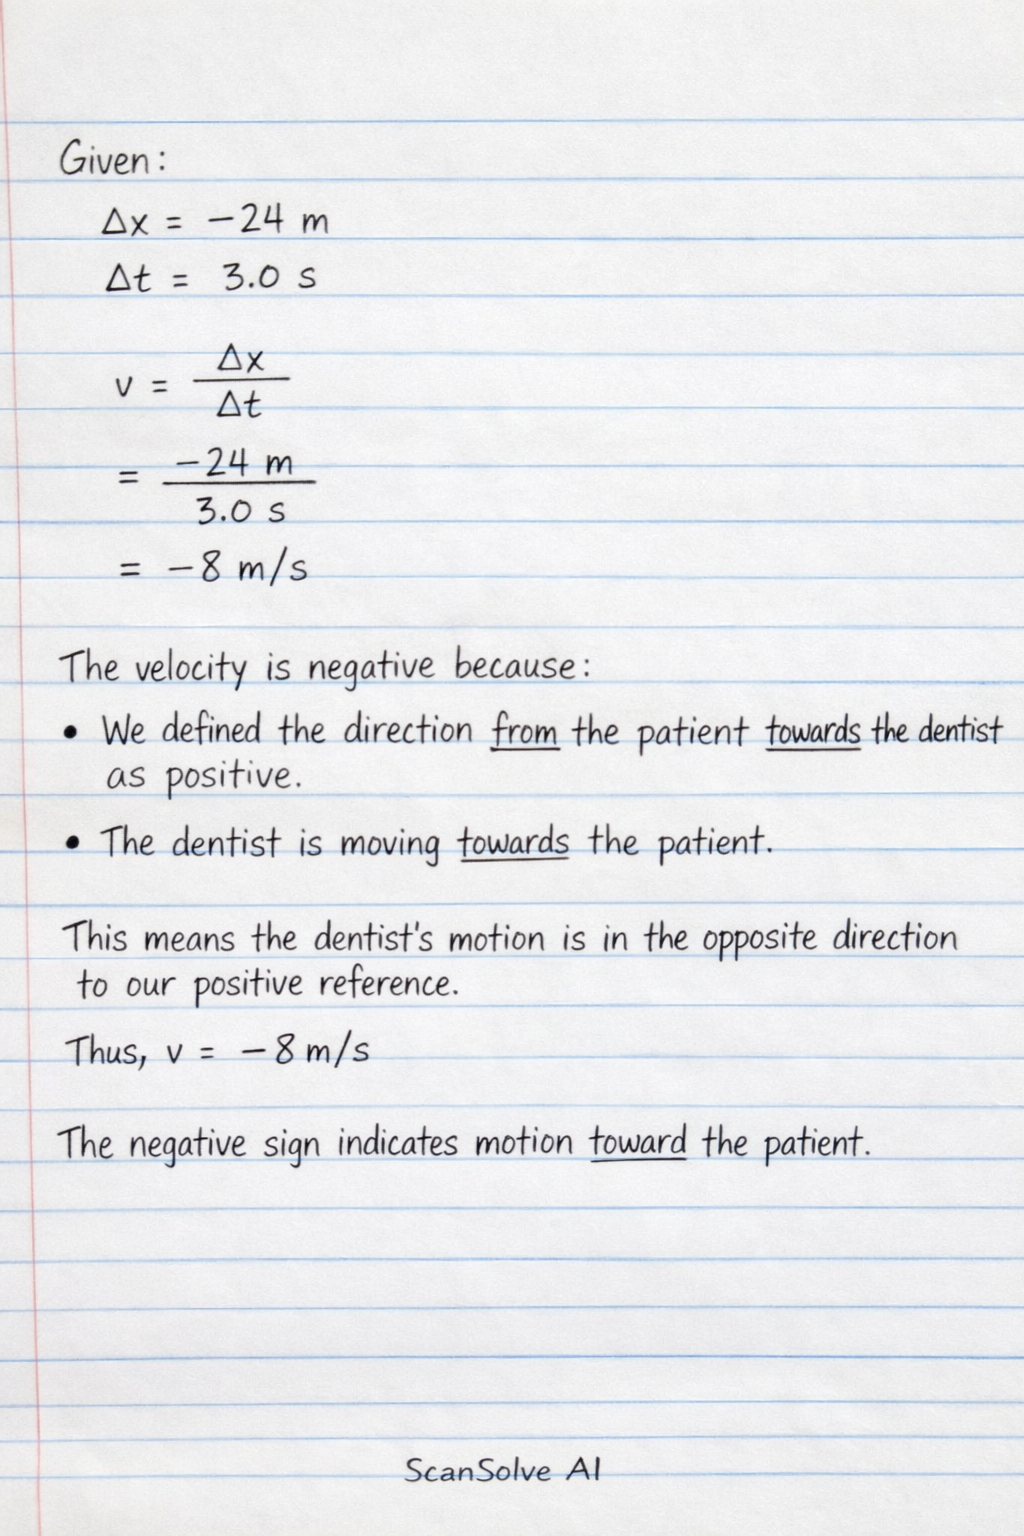 Given:
Δx = −24 m
Δt = 3.0 s
v = Δx / Δt
= −24 m / 3.0 s
= −8 m/s
The velocity is negative because:
• We defined the direction from the patient towards the dentist
as positive.
• The dentist is moving towards the patient.
This means the dentist's motion is in the opposite direction
to our positive reference.
Thus, v = −8 m/s
The negative sign indicates motion toward the patient.
ScanSolve AI